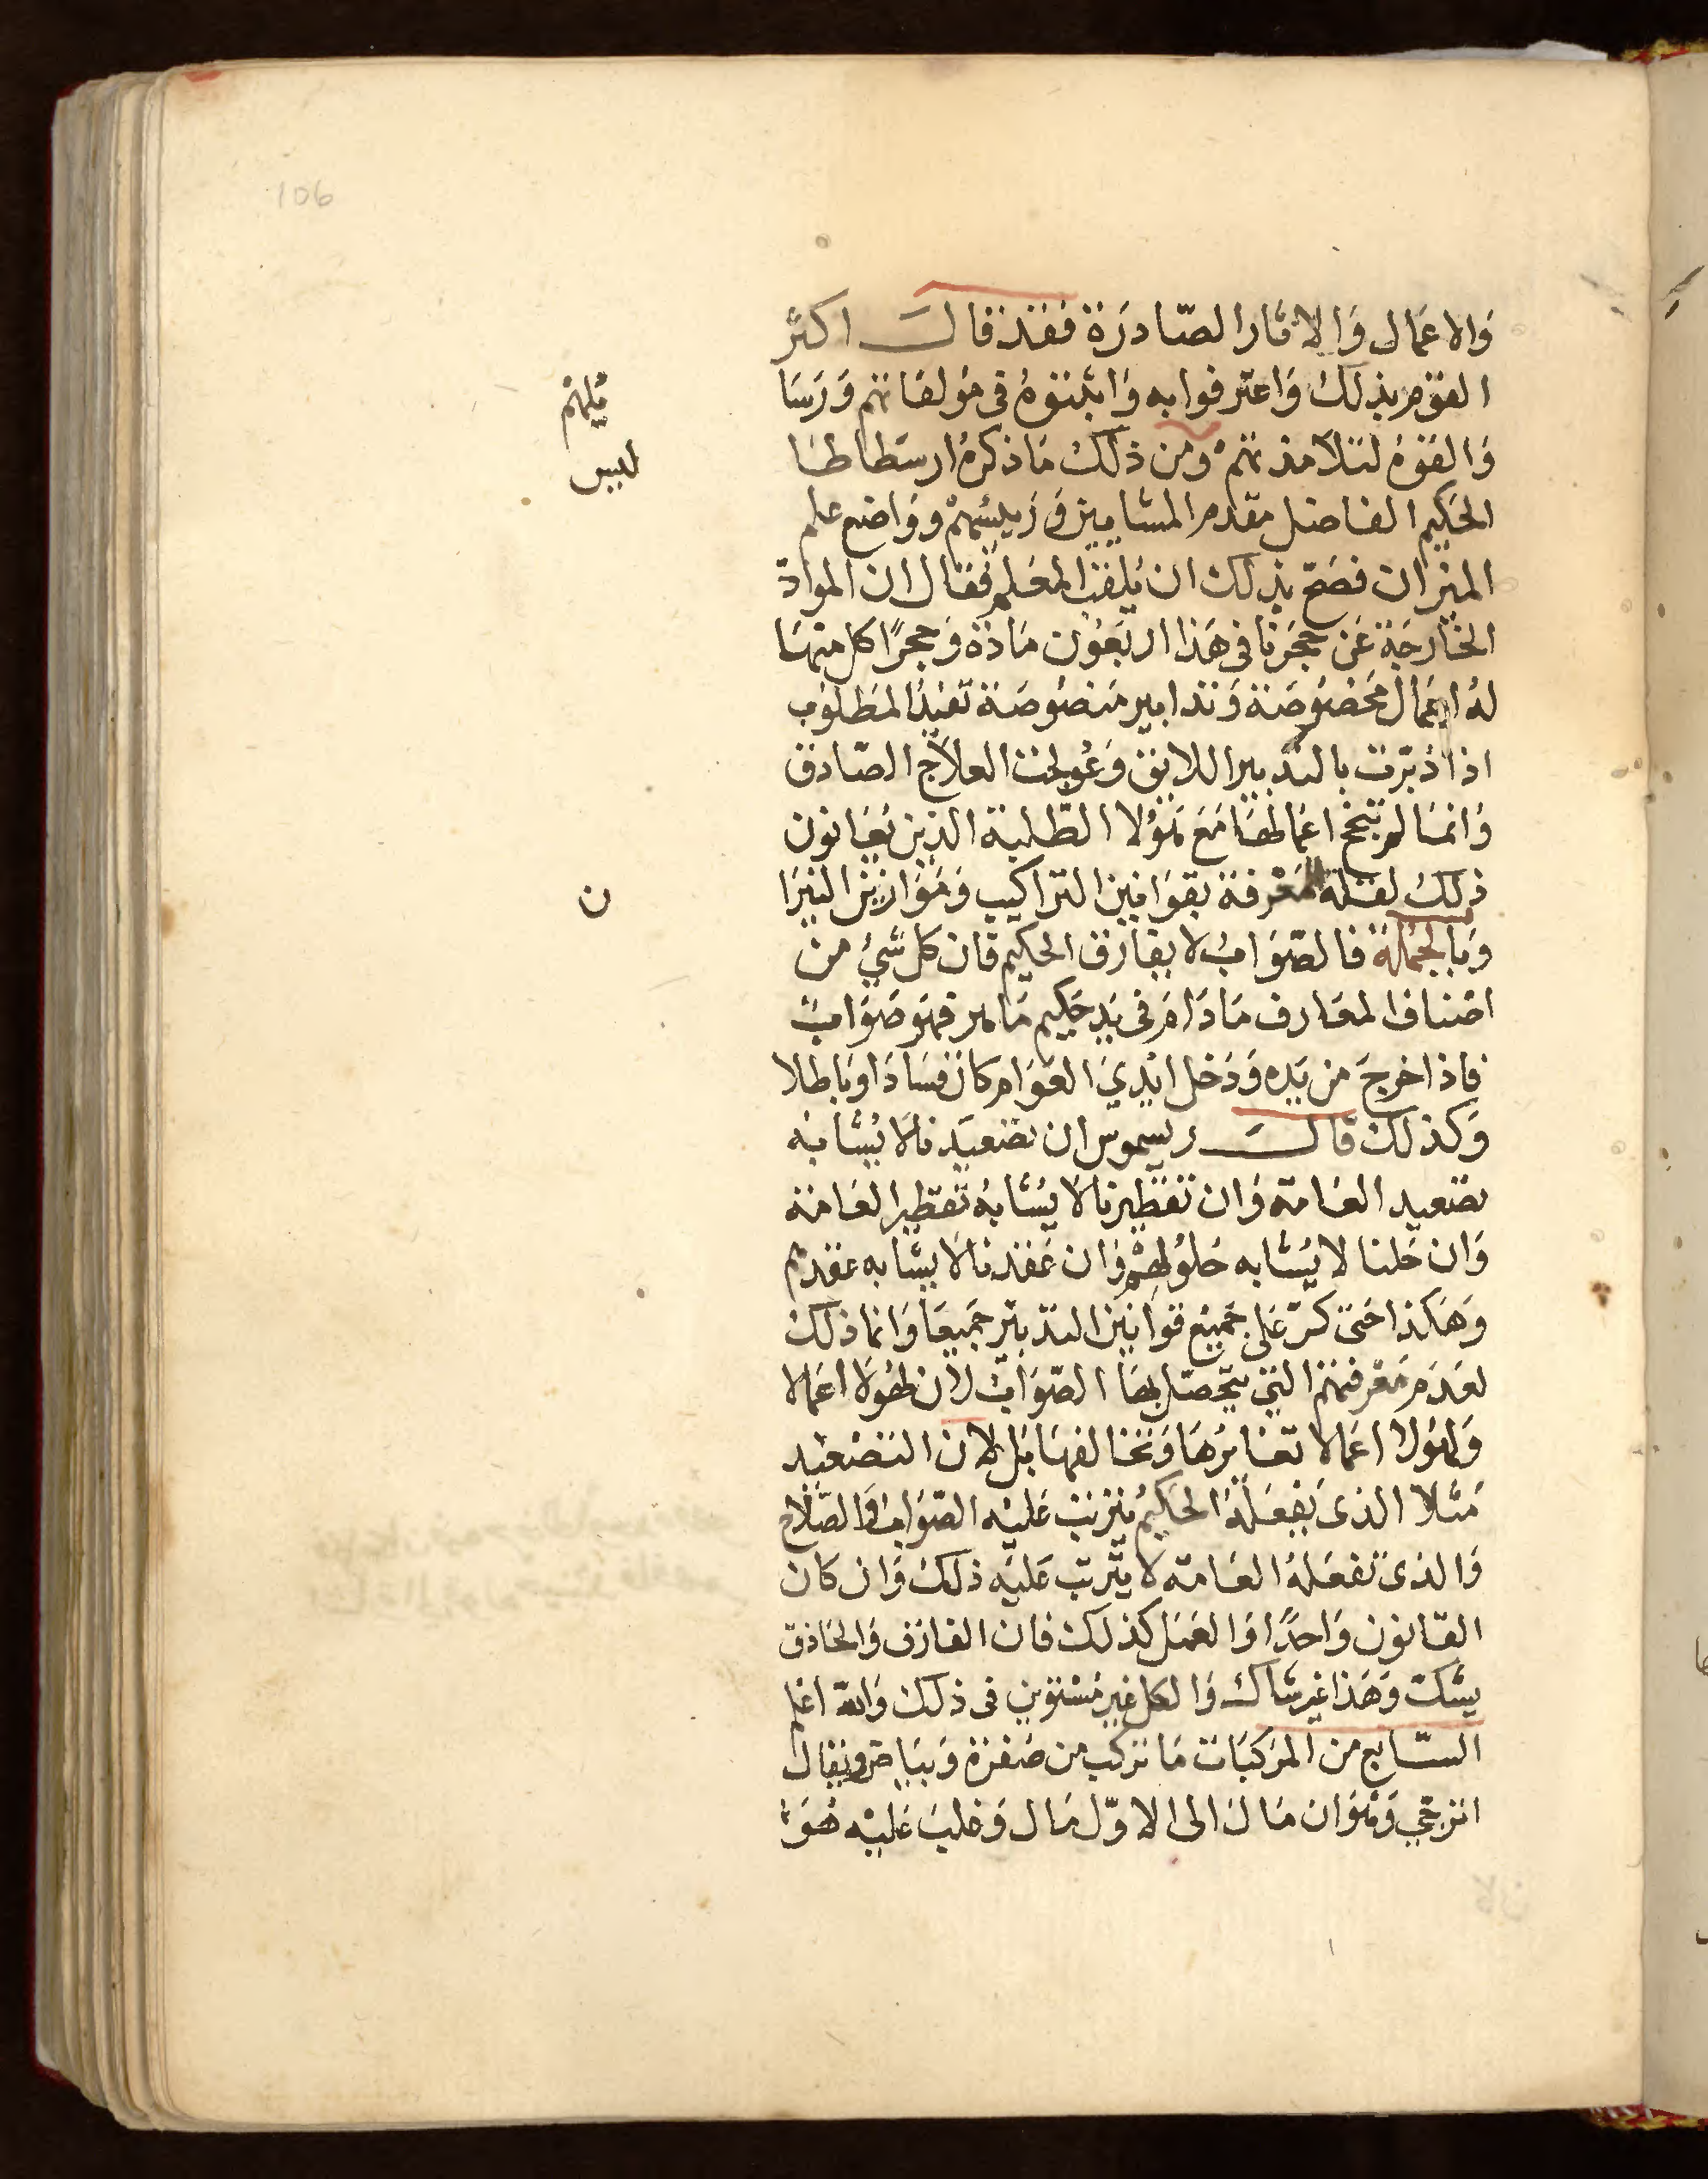 106
والاعمال والاثار الصادرة فقد قال اكثر
القوم بذلك واعترفوا به واثبتوه فى مولفاتهم ورسا
ئلهم
والقوه لتلامذتهم ومن ذلك ما ذكره ارسطاطا
لليس
الحكيم الفاضل مقدم المشايين وزيسهم وواضع علم
الميزان فصح بذلك ان يلقب المعلم فقال ان المواد
الخارجة عن حجرنا فى هذا اربعون مادة وحجرا كل منها
له اعمال مخصوصة وتدابير منصوصة تفيد المطلوب
اذا دبرت بالتدبير اللايق وعولجت العلاج الصادق
وانما لم تنجح اعمالها مع هؤلا الطلبة الذين يعانون
ذلك لقلة المعرفة بقوانين التراكيب وموازين النيرا
ن
وبالجملة فالصواب لا يفارق الحكيم فان كل شئ من
اصناف المعارف مادام فى يد حكيم ماهر فهو صواب
فاذا خرج من يده ودخل ايدي العوام كان فسادا وباطلا
وكذلك قال ريسموس ان تصعيدنا لا يشابه
تصعيد العامة وان تقطيرنا لا يشابه تقطير العامة
وان حلنا لا يشابه حلولهم وان عقدنا لا يشابه عقدهم
وهكذا حتى كر على جميع قوانين التدبير جميعا وانما ذلك
لعدم معرفتهم التى يتحصل بها الصواب لان لهولا اعمالا
ولهولا اعمالا تغايرها وتخالفها بل لان التصعيد
مثلا الذى يفعله الحكيم يترتب عليه الصواب والصلاح
والذى تفعله العامة لا يترتب عليه ذلك وان كان
القانون واحدا والعمل كذلك فان العارف والحاذق
يشك وهذا غير شاك والكل غير مستوين فى ذلك والله اعلم
السابع من المركبات ما تركب من صفرة وبياض ويقال
اترجي وهو ان مال الى الاول مال وغلب عليه هو